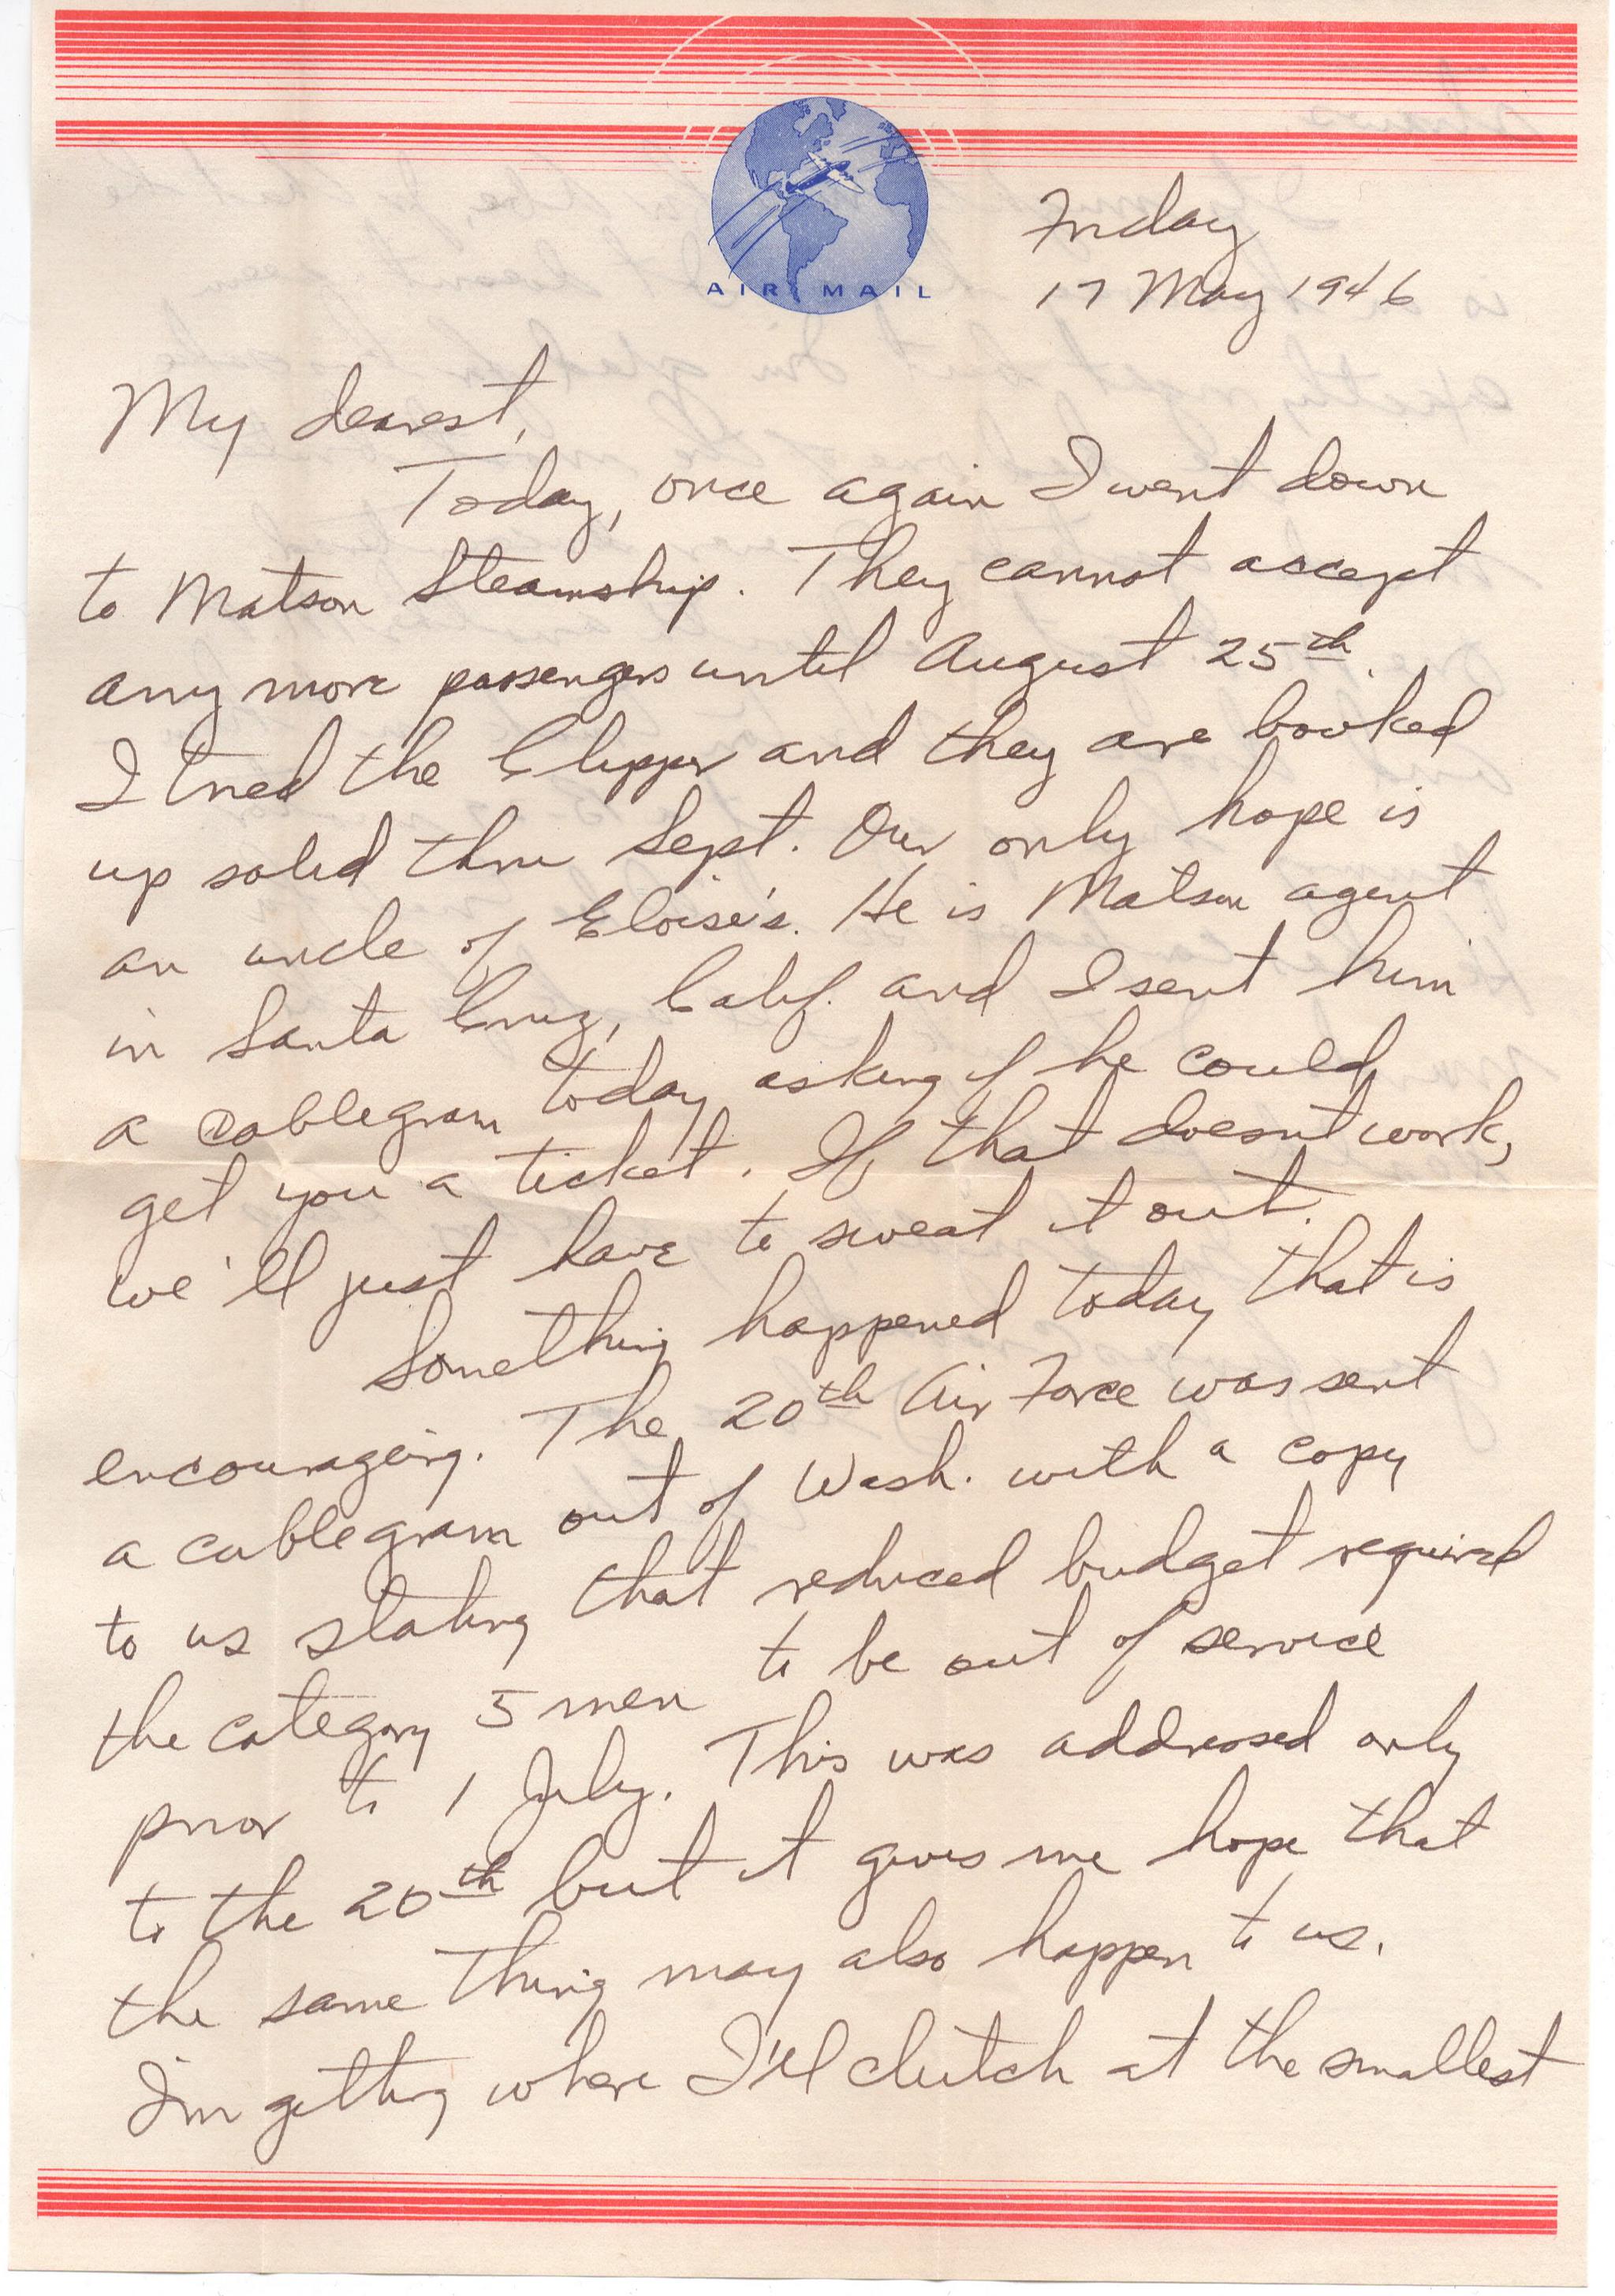 AIR MAIL
Friday
17 May 1946
My dearest,
Today, once again I went down
to Matson Steamship. They cannot accept
any more passengers until August 25th.
I tried the Clipper and they are booked
up solid thru Sept. Our only hope is
an uncle of Eloise's. He is Matson agent
in Santa Cruz, Calif. and I sent him
a cablegram today asking if he could
get you a ticket. If that doesn't work,
we'll just have to sweat it out.
Something happened today that is
encouraging. The 20th Air Force was sent
a cablegram out of Wash. with a copy
to us stating that reduced budget required
the category 5 men to be out of service
prior to 1 July. This was addressed only
to the 20th but it gives me hope that
the same thing may also happen to us.
I'm getting where I'll clutch at the smallest